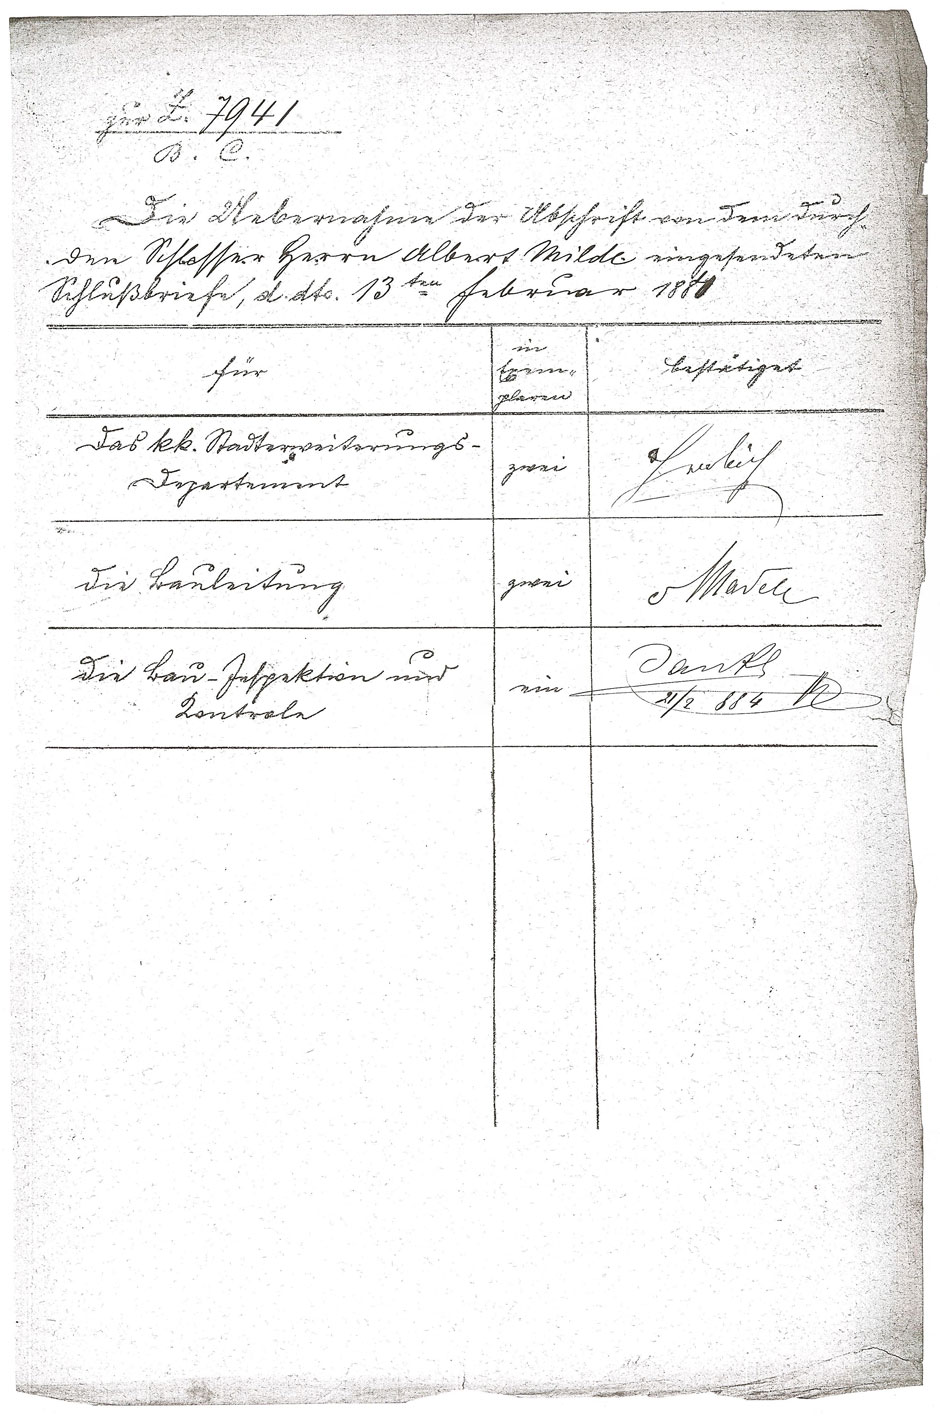 zur Z. 7941
B. C.
Die Uebernahme der Abschrift von dem durch
den Schlosser Herrn Albert Milde eingesendeten
Schlußbriefe, d. dto. 13ten Februar 1884
für
in
Exem-
plaren
bestätiget
Das kk. Stadterweiterungs-
Departement
zwei
die Bauleitung
zwei
die Bau-Inspektion und
Kontrole
ein
21/2 884